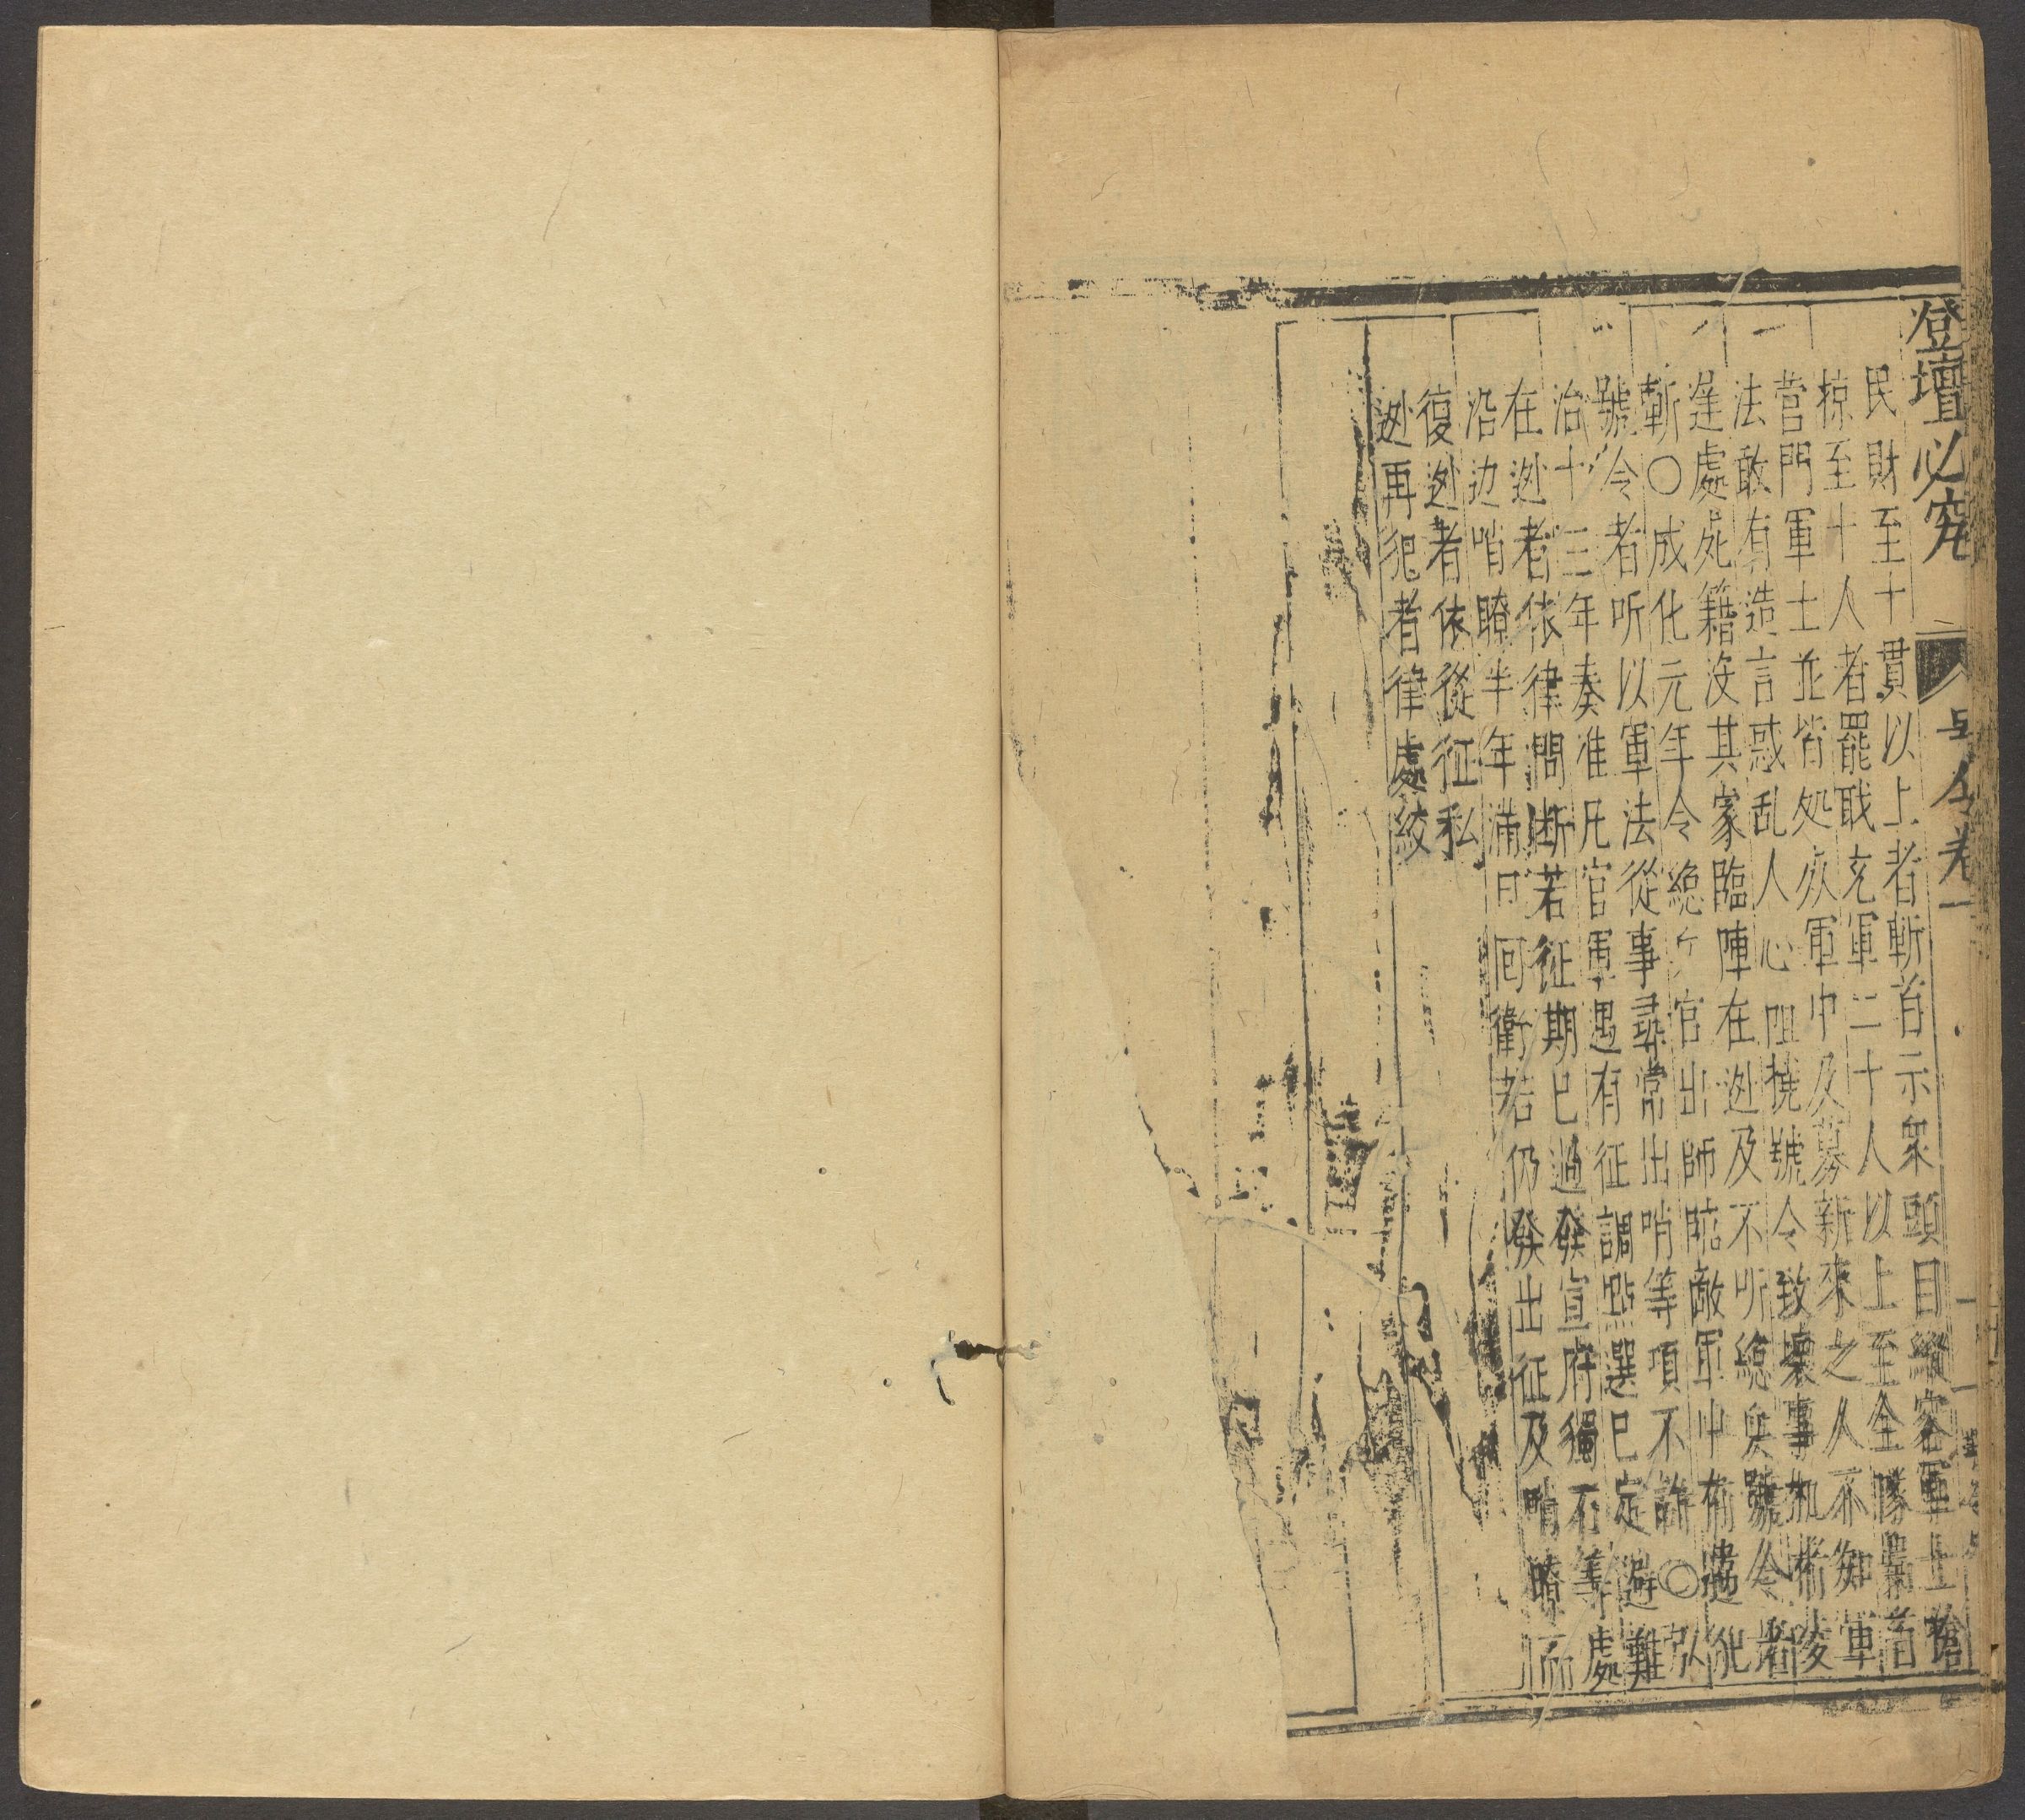 登壇必究 卷一
民財至十貫以上者斬首示眾頭目縱容軍士搶
掠至十人者罷職充軍二十人以上至全隊梟首
营門軍士並皆処
軍中及募新來之人不知軍
法敢有造言惑乱人心阻撓號令致壞事机者
逢處死籍沒其家臨陣在逊及不听總兵號令者
斬〇成化元年令總
官出師臨敵軍中有違犯
號令者听以軍法從事尋常出哨等項不許〇弘
治十三年奏准凡官軍遇有征調點選已定避難
在逊者依律問断若征期已過發宣府獨石等處
沿边哨瞭半年滿日囘衛若仍發出征及哨瞭而
復逊者依從征私
逊再犯者律處絞